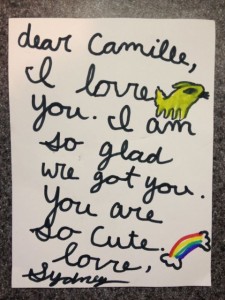 dear Camille,
I love
you. I am
so glad
we got you.
You are
so cute.
love,
Sydney